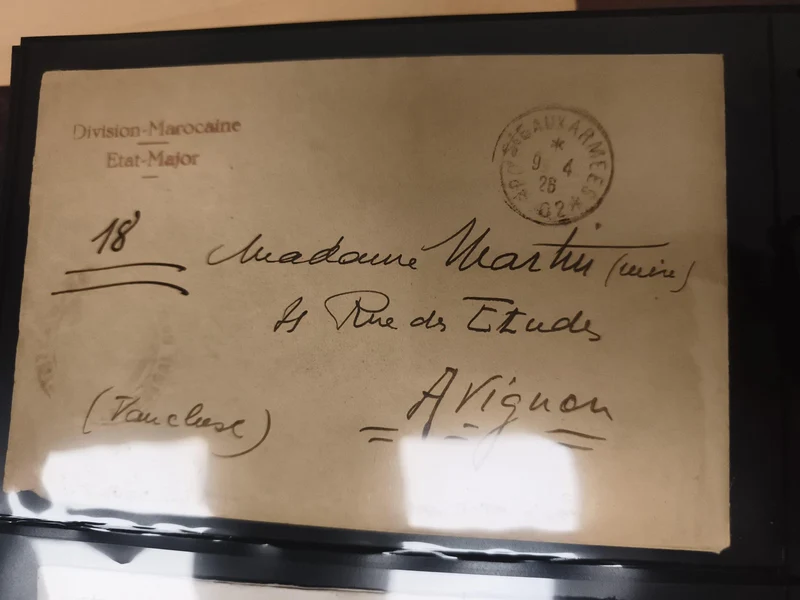 Division-Marocaine
Etat-Major
AUX ARMEES
*
9 4
26
*
18
Madame Martin (mère)
Rue des Etudes
Avignon
(Vaucluse)